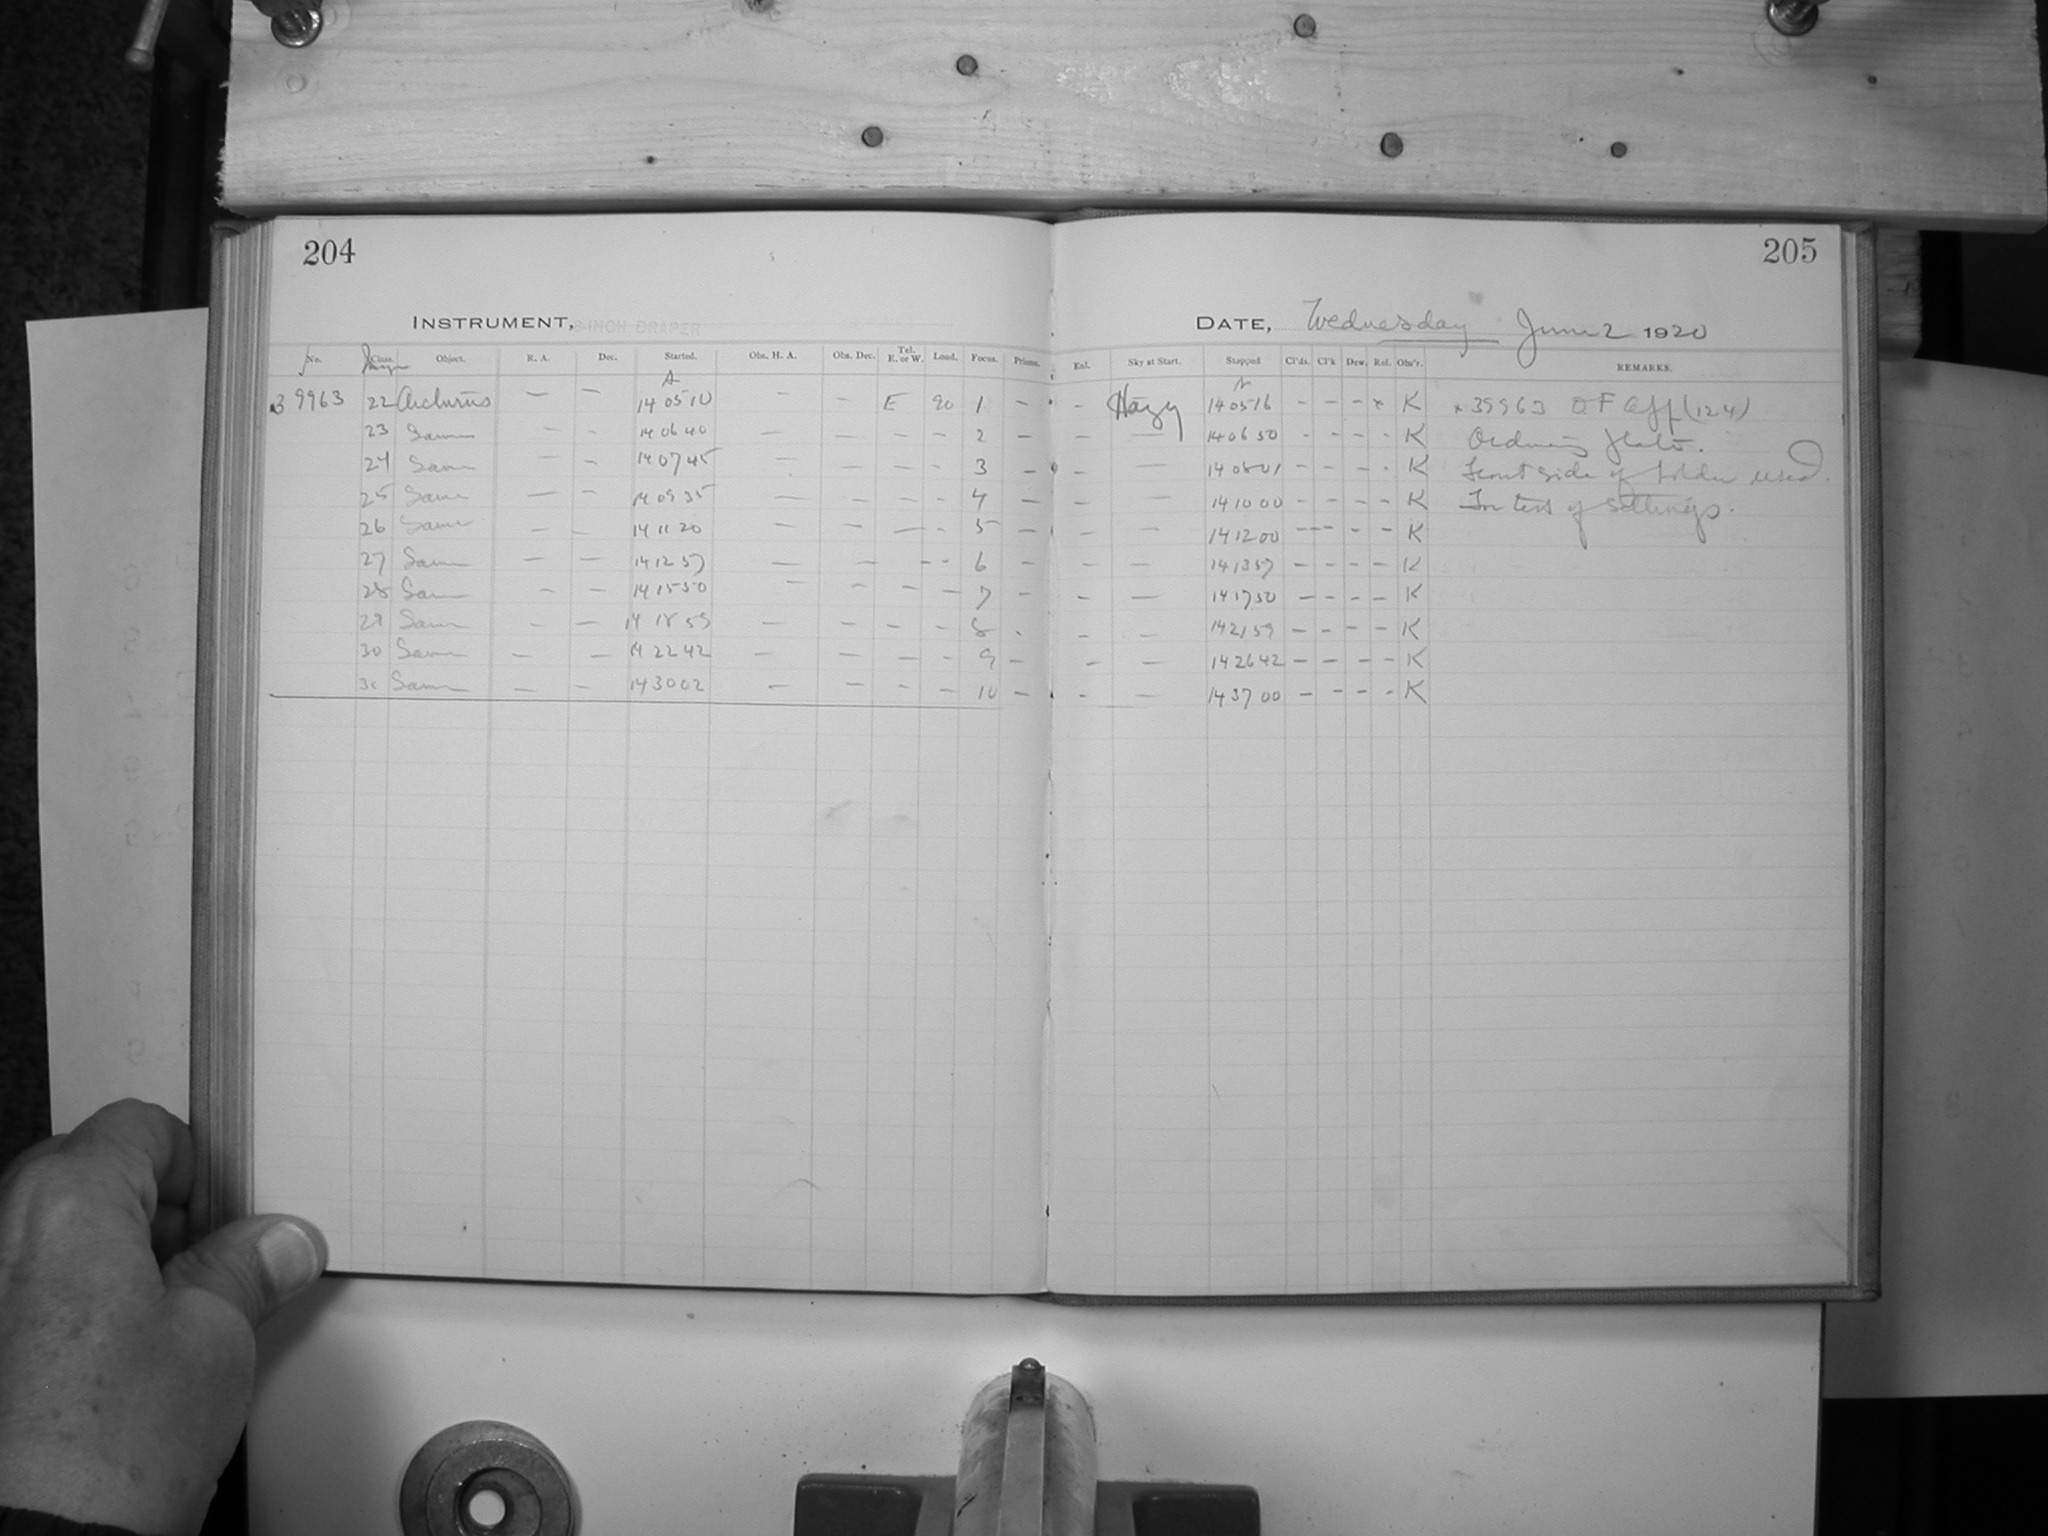 204
205
INSTRUMENT, 8-INCH DRAPER
DATE, Wednesday June 2 1920
No. Class. Object. R. A. Dec. Started. Obs. H. A. Obs. Dec. Tel. E. or W. Load. Focus. Prisms. Enl. Sky at Start. Stopped Cl'ds. Cl'k Dew. Ref. Obs'r. REMARKS.
39963 22 Arcturus — — 14 05 10 E 90 1 — - Hazy 14 05 16 - - - x K x 39963 O F Aff (124)
23 Same — - 14 06 40 — - - - 2 — - — 14 06 50 - - - - K Ordinary plate.
24 Same — - 14 07 45 - - - - 3 — - — 14 08 01 - - - - K Front side of holder used.
25 Same — - 14 09 35 — - - - 4 — - — 14 10 00 - - - - K For test of settings.
26 Same — - 14 11 20 — - — - 5 — - — 14 12 00 - - - - K
27 Same — — 14 12 57 — - - - 6 - - — 14 13 57 - - - - K
28 Same - - 14 15 50 — - - - 7 - - — 14 17 50 - - - - K
29 Same - — 14 18 59 — - - - 8 - - — 14 21 59 - - - - K
30 Same — — 14 22 42 — - - - 9 - - — 14 26 42 - - - - K
31 Same — - 14 30 02 - - - - 10 - - — 14 37 00 - - - - K